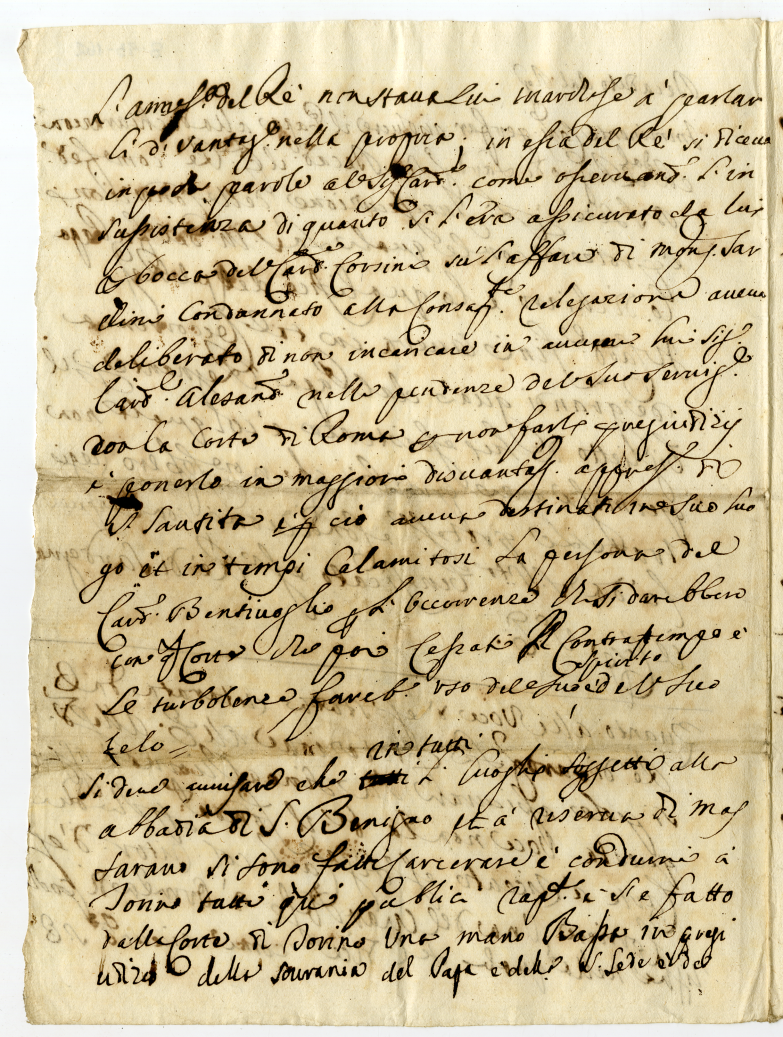 del Rè non staua lui Marchese a' parlar
li di vantag.º nella propria; in essa del Rè si diceua
in poche parole al Sig.r Card.e come osseruand.º l'in
sussistenza di quanto si l'era assicurato da lui
bocca del Card.e Corsini sù l'affare di Mons.r Sar
dini condannato alla relegazione aueua
deliberato di non incaricare in auuenire lui Sig.r
Card.e Alesand.º nelle pendenze del suo seruig.º
con la Corte di Roma non farli pregiudizij
è ponerlo in maggiori disuantag. appress.º di
S. Santità e p ciò aueua destinati in suo luo
go et in tempi calamitosi la persona del
Card.e Bentiuoglio p l'occorrenze che si darebbero
con q.ta Corte che poi cessati il contratempo e
spirito
le turbolenze fareb.e uso del suo è del suo
zelo =
in tutti
Si deue auuisare che tutti i luoghi soggetti alla
abbadia di S. Benigno et à riserua di
sarano si sono fatti carcerare è condurre à
Torino tutti quei publici rap.ti si è fatto
dalla Corte di Torino una mano Bassa in pregi
udizio della sourania del Papa e della S. Sede e del